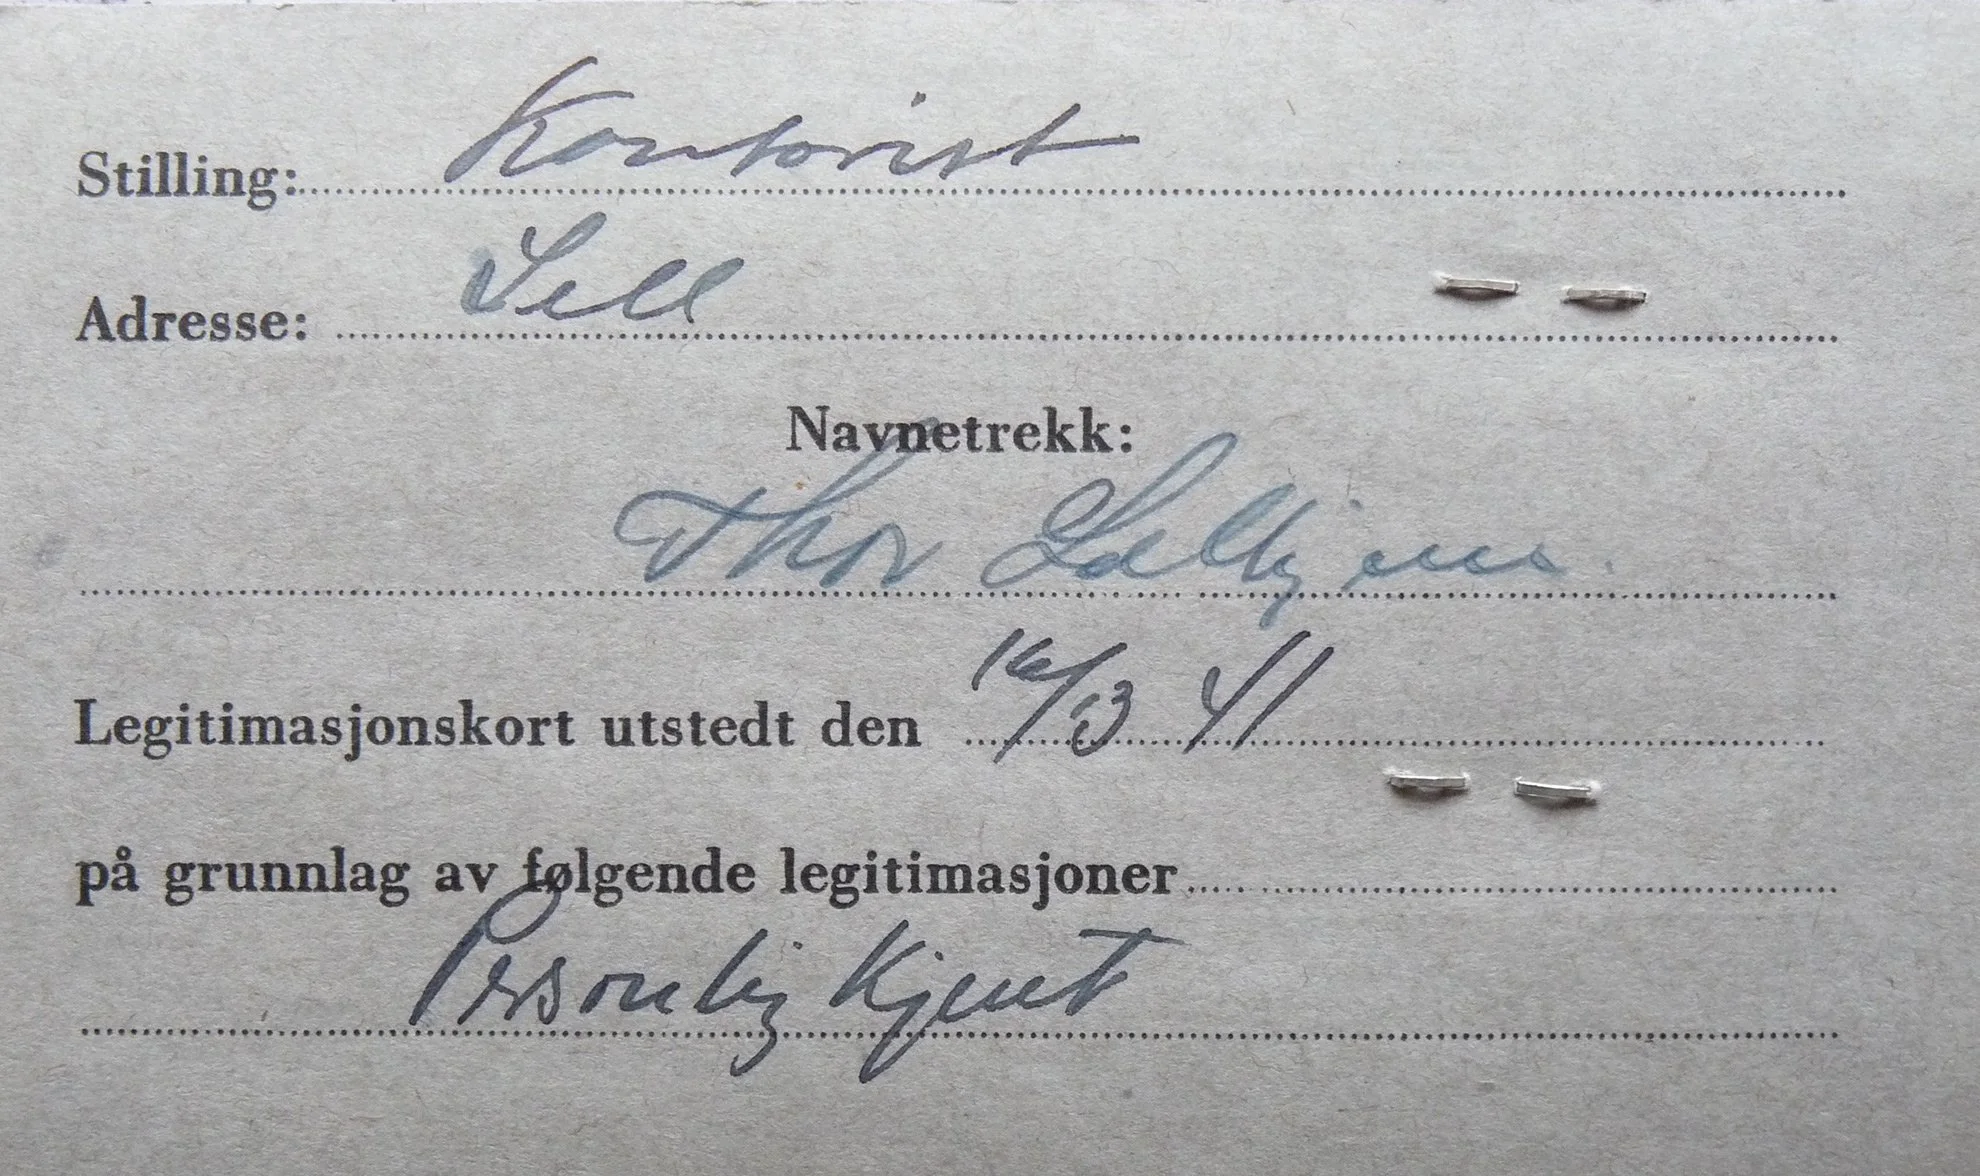 Stilling: Kontorist
Adresse: Sell
Navnetrekk:
Thor
Legitimasjonskort utstedt den 16/3 41
på grunnlag av følgende legitimasjoner
Personlig Kjent